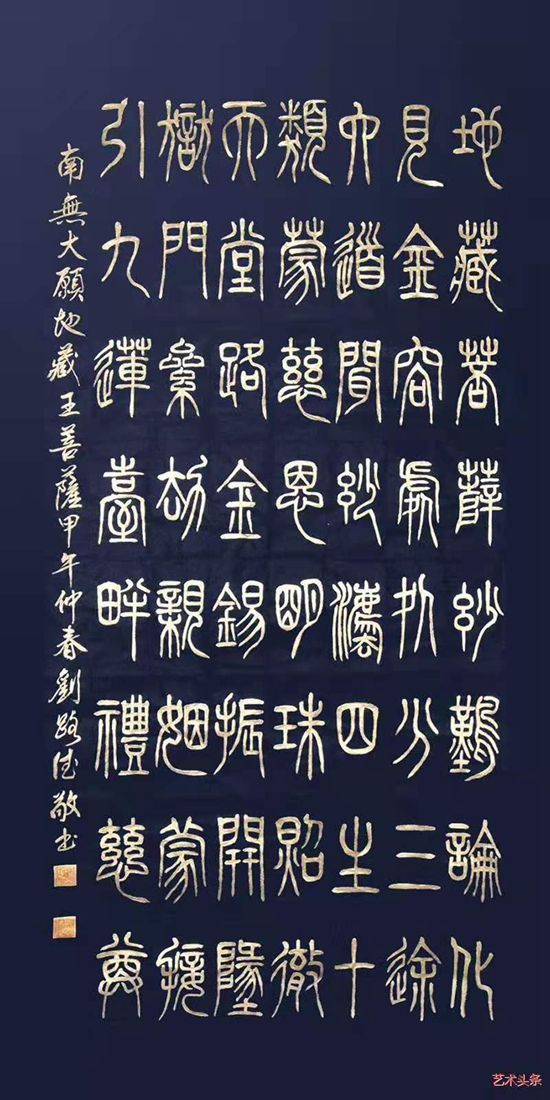 地藏菩薩妙難論化
見金容處处分三途
六道聞妙法四生十
類蒙慈恩明珠照徹
天堂路金錫振開地
獄門累劫親姻蒙接
引九蓮臺畔禮慈尊
南無大願地藏王菩薩甲午仲春劉路敬书
艺术头条